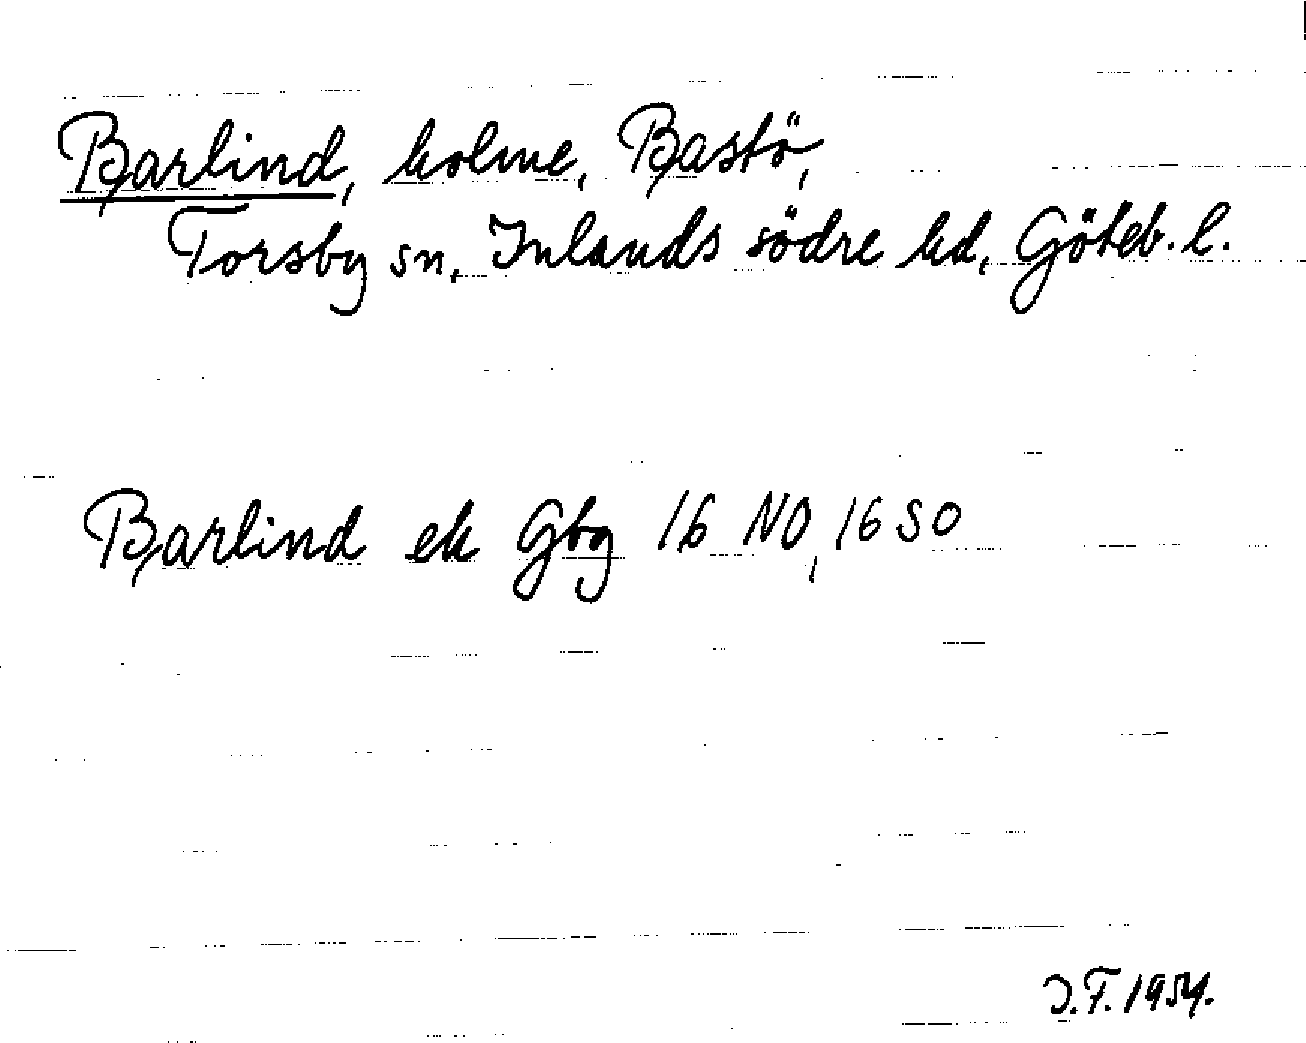 Barlind, holme, Bastö,
Torsby sn, Inlands södre hd, Göteb. l.
Barlind ek Gbg 16 NO, 16 SO
J.F. 1954.